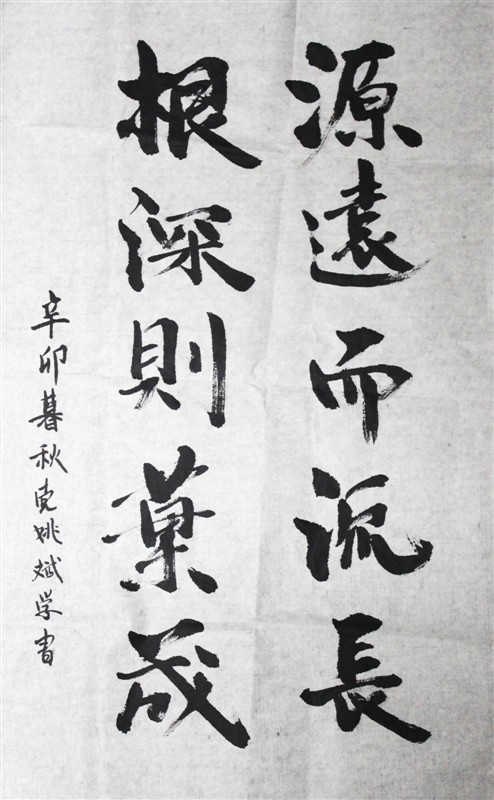 源遠而流長
根深則葉茂
辛卯暮秋姚斌学書